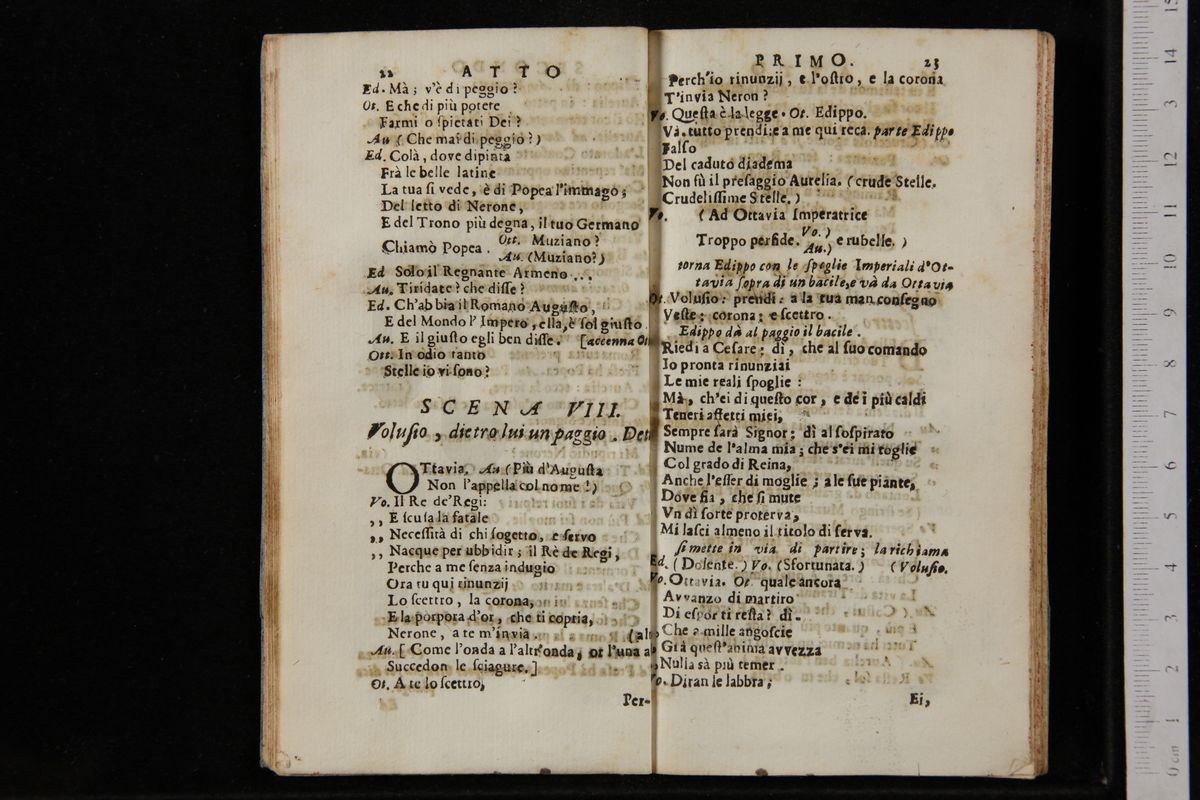 22 ATTO
Ed. Mà; v'è di peggio?
Ot. E che di più potete
Farmi o ſpietati Dei?
Au (Che mai di peggio?)
Ed. Colà, dove dipinta
Frà le belle latine
La tua ſi vede, è di Popea l'immago;
Del letto di Nerone,
E del Trono più degna, il tuo Germano
Chiamò Popea. Ott. Muziano?
Au. (Muziano?)
Ed Solo il Regnante Armeno...
Au. Tiridate? che diſſe?
Ed. Ch'abbia il Romano Auguſto,
E del Mondo l'Impero, ella, è ſol giuſto.
Au. E il giuſto egli ben diſſe. [accenna Ot
Ott. In odio tanto
Stelle io vi ſono?
SCENA VIII.
Voluſio, dietro lui un paggio. Det
OTtavia. Au (Più d'Auguſta
Non l'appella col nome!)
Vo. Il Re de' Regi:
,, E ſcuſa la fatale
,, Neceſſità di chi ſogetto, e ſervo
,, Nacque per ubbidir; il Rè de Regi,
Perche a me ſenza indugio
Ora tu qui rinunzij
Lo ſcettro, la corona,
E la porpora d'or, che ti copria,
Nerone, a te m'invia. (alt
Au. [Come l'onda a l'altr'onda, or l'una a
Succedon le ſciagure.]
Ot. A te lo ſcettro,
Per-
PRIMO. 23
Perch'io rinunzij, e l'oſtro, e la corona
T'invia Neron?
Vo. Queſta è la legge. Ot. Edippo.
Và. tutto prendi: e a me qui reca. parte Edippo
Falſo
Del caduto diadema
Non fù il preſaggio Aurelia. (crude Stelle.
Crudeliſſime Stelle.)
Vo. (Ad Ottavia Imperatrice
Troppo perfide. Vo. )
Au. ) e rubelle. )
torna Edippo con le ſpoglie Imperiali d'Ot-
tavia ſopra di un bacile, e và da Ottavia
Ot. Voluſio: prendi: a la tua man conſegno
Veſte; corona; e ſcettro.
Edippo dà al paggio il bacile.
Riedi a Ceſare; dì, che al ſuo comando
Io pronta rinunziai
Le mie reali ſpoglie:
Mà, ch'ei di queſto cor, e de i più caldi
Teneri affetti miei,
Sempre ſarà Signor; dì al ſoſpirato
Nume de l'alma mia; che s'ei mi toglie
Col grado di Reina,
Anche l'eſſer di moglie; a le ſue piante,
Dove fia, che ſi mute
Vn dì ſorte proterva,
Mi laſci almeno il titolo di ſerva.
ſi mette in via di partire; la richiama
Ed. (Dolente.) Vo. (Sfortunata.) (Voluſio.
Vo. Ottavia. Ot. quale ancora
Avvanzo di martiro
Di eſpor ti reſta? dì.
Che a mille angoſcie
Già queſt'anima avvezza
Nulla sà più temer.
Vo. Diran le labbra;
Ei,